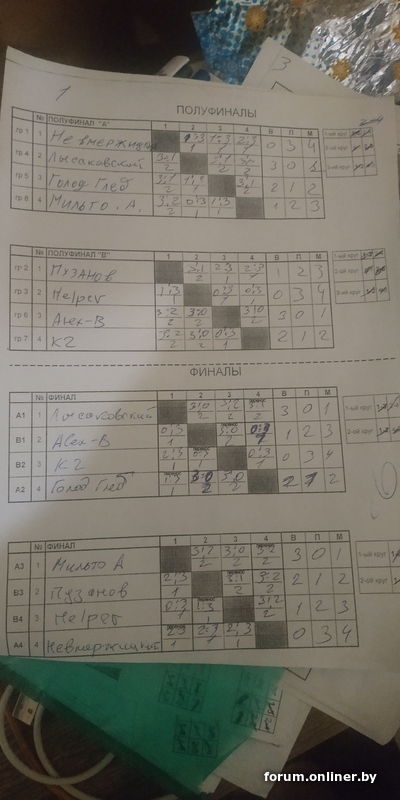 1
3
ПОЛУФИНАЛЫ
№ ПОЛУФИНАЛ "А" 1 2 3 4 В П М
гр 1 1 Невмержицкий 0 3 4
гр 4 2 Лысаковский 3:1 3 0 1
2 2 2
гр 5 3 Голод Глеб 3:1 1:3 3:1 2 1 2
2 1 2
гр 8 4 Мильто . А. 3:2 0:3 1:3 1 2 3
2 1 1
1-ый круг
№ ПОЛУФИНАЛ "В" 1 2 3 4 В П М
гр 2 1 Пузанов 3:1 2:3 2:3 1 2 3
2 1 1
гр 3 2 Helper 1:3 0:3 0:3 0 3 4
1 1 1
гр 6 3 Alex-B 3:2 3:0 3:0 3 0 1
2 2 2
гр 7 4 K2 3:2 3:0 0:3 2 1 2
2 2 1
1-ый круг
2-ой круг
ФИНАЛЫ
№ ФИНАЛ 1 2 3 4 В П М
А1 1 Лысаковский 3:0 3:2 3 0 1
2 2 2
В1 2 Alex-B 0:3 3:0 1 2 3
1 2
В2 3 K2 2:3 0:3 0:3 0 3 4
1 1 1
А2 4 Голод Глеб 1:3 3:0 3:0 2 1 2
1 2 2
1-ый круг
2-ой круг
№ ФИНАЛ 1 2 3 4 В П М
А3 1 Мильто А 3:2 3:0 3:2 3 0 1
2 2 2
В3 2 Пузанов 2:3 3:1 3:2 2 1 2
1 2 2
В4 3 Helper 0:3 1:3 3:2 1 2 3
1 1 2
А4 4 Невмержицкий 2:3 2:3 2:3 0 3 4
1 1 1
1-ый круг
2-ой круг
forum.onliner.by